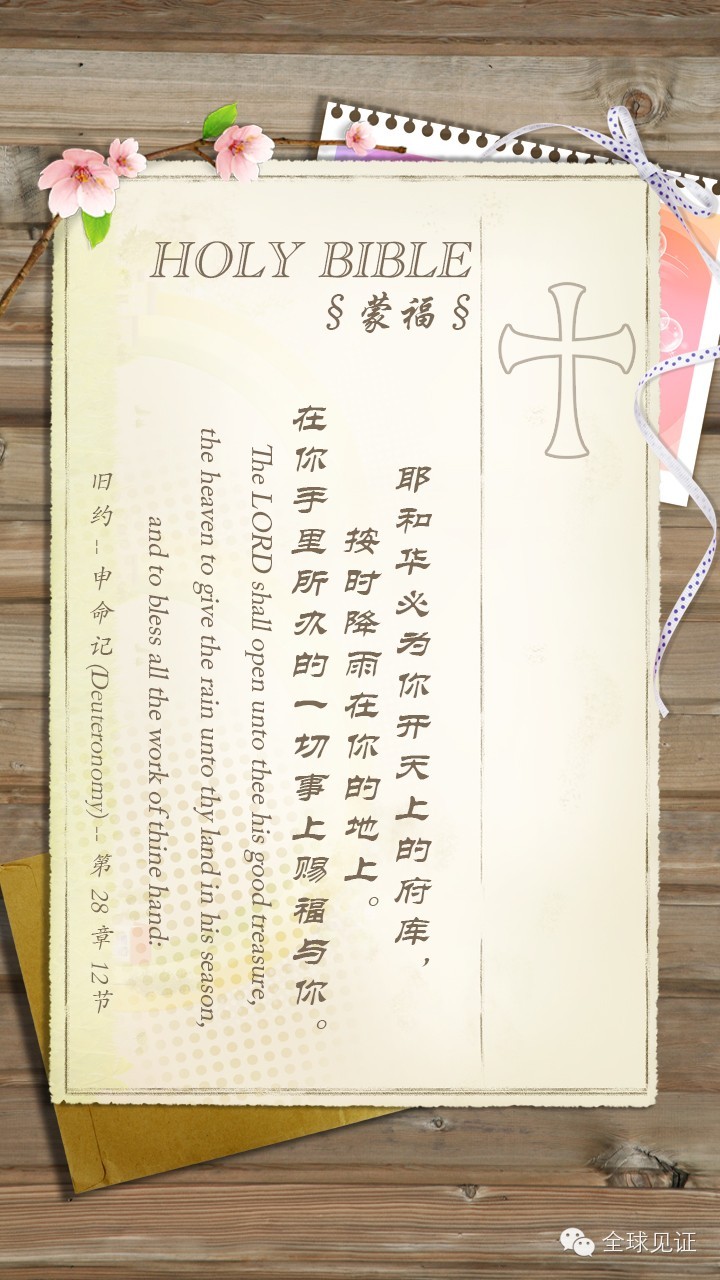 HOLY BIBLE
§ 蒙福 §
耶和华必为你开天上的府库，
按时降雨在你的地上。
在你手里所办的一切事上赐福与你。
The LORD shall open unto thee his good treasure,
the heaven to give the rain unto thy land in his season,
and to bless all the work of thine hand:
旧约 -- 申命记 (Deuteronomy) -- 第 28 章 12节
全球见证